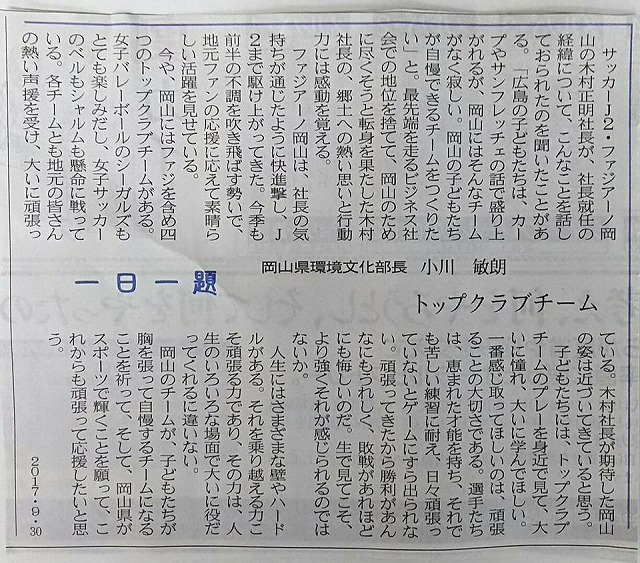 一日一題
トップクラブチーム
岡山県環境文化部長 小川 敏朗
サッカーJ2・ファジアーノ岡
山の木村正明社長が、社長就任の
経緯について、こんなことを話し
ておられたのを聞いたことがあ
る。「広島の子どもたちは、カー
プやサンフレッチェの話で盛り上
がれるが、岡山にはそんなチーム
がなく寂しい。岡山の子どもたち
が自慢できるチームをつくりた
い」と。最先端を走るビジネス社
会での地位を捨てて、岡山のため
に尽くそうと転身を果たした木村
社長の、郷土への熱い思いと行動
力には感動を覚える。
ファジアーノ岡山は、社長の気
持ちが通じたように快進撃し、J
2まで駆け上がってきた。今季も
前半の不調を吹き飛ばす勢いで、
地元ファンの応援に応えて素晴ら
しい活躍を見せている。
今や、岡山にはファジを含め四
つのトップクラブチームがある。
女子バレーボールのシーガルズも
とても楽しみだし、女子サッカー
のベルもシャルムも懸命に戦って
いる。各チームとも地元の皆さん
の熱い声援を受け、大いに頑張っ
ている。木村社長が期待した岡山
の姿は近づいてきていると思う。
子どもたちには、トップクラブ
チームのプレーを身近で見て、大
いに憧れ、大いに学んでほしい。
一番感じ取ってほしいのは、頑張
ることの大切さである。選手たち
は、恵まれた才能を持ち、それで
も苦しい練習に耐え、日々頑張っ
ていないとゲームにすら出られな
い。頑張ってきたから勝利があん
なにもうれしく、敗戦があれほど
にも悔しいのだ。生で見てこそ、
より強くそれが感じられるのでは
ないか。
人生にはさまざまな壁やハード
ルがある。それを乗り越える力こ
そ頑張る力であり、その力は、人
生のいろいろな場面で大いに役だ
ってくれるに違いない。
岡山のチームが、子どもたちが
胸を張って自慢するチームになる
ことを祈って、そして、岡山県が
スポーツで輝くことを願って、こ
れからも頑張って応援したいと思
う。
2017・9・30